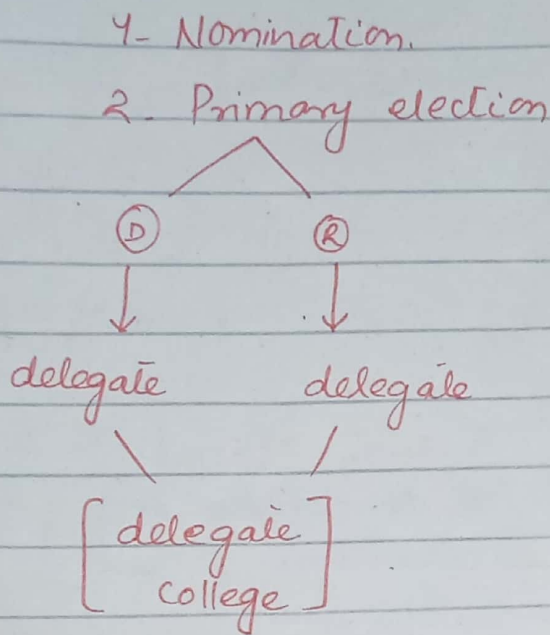 1- Nomination.
2- Primary election
D R
delegate delegate
[ delegate
college ]